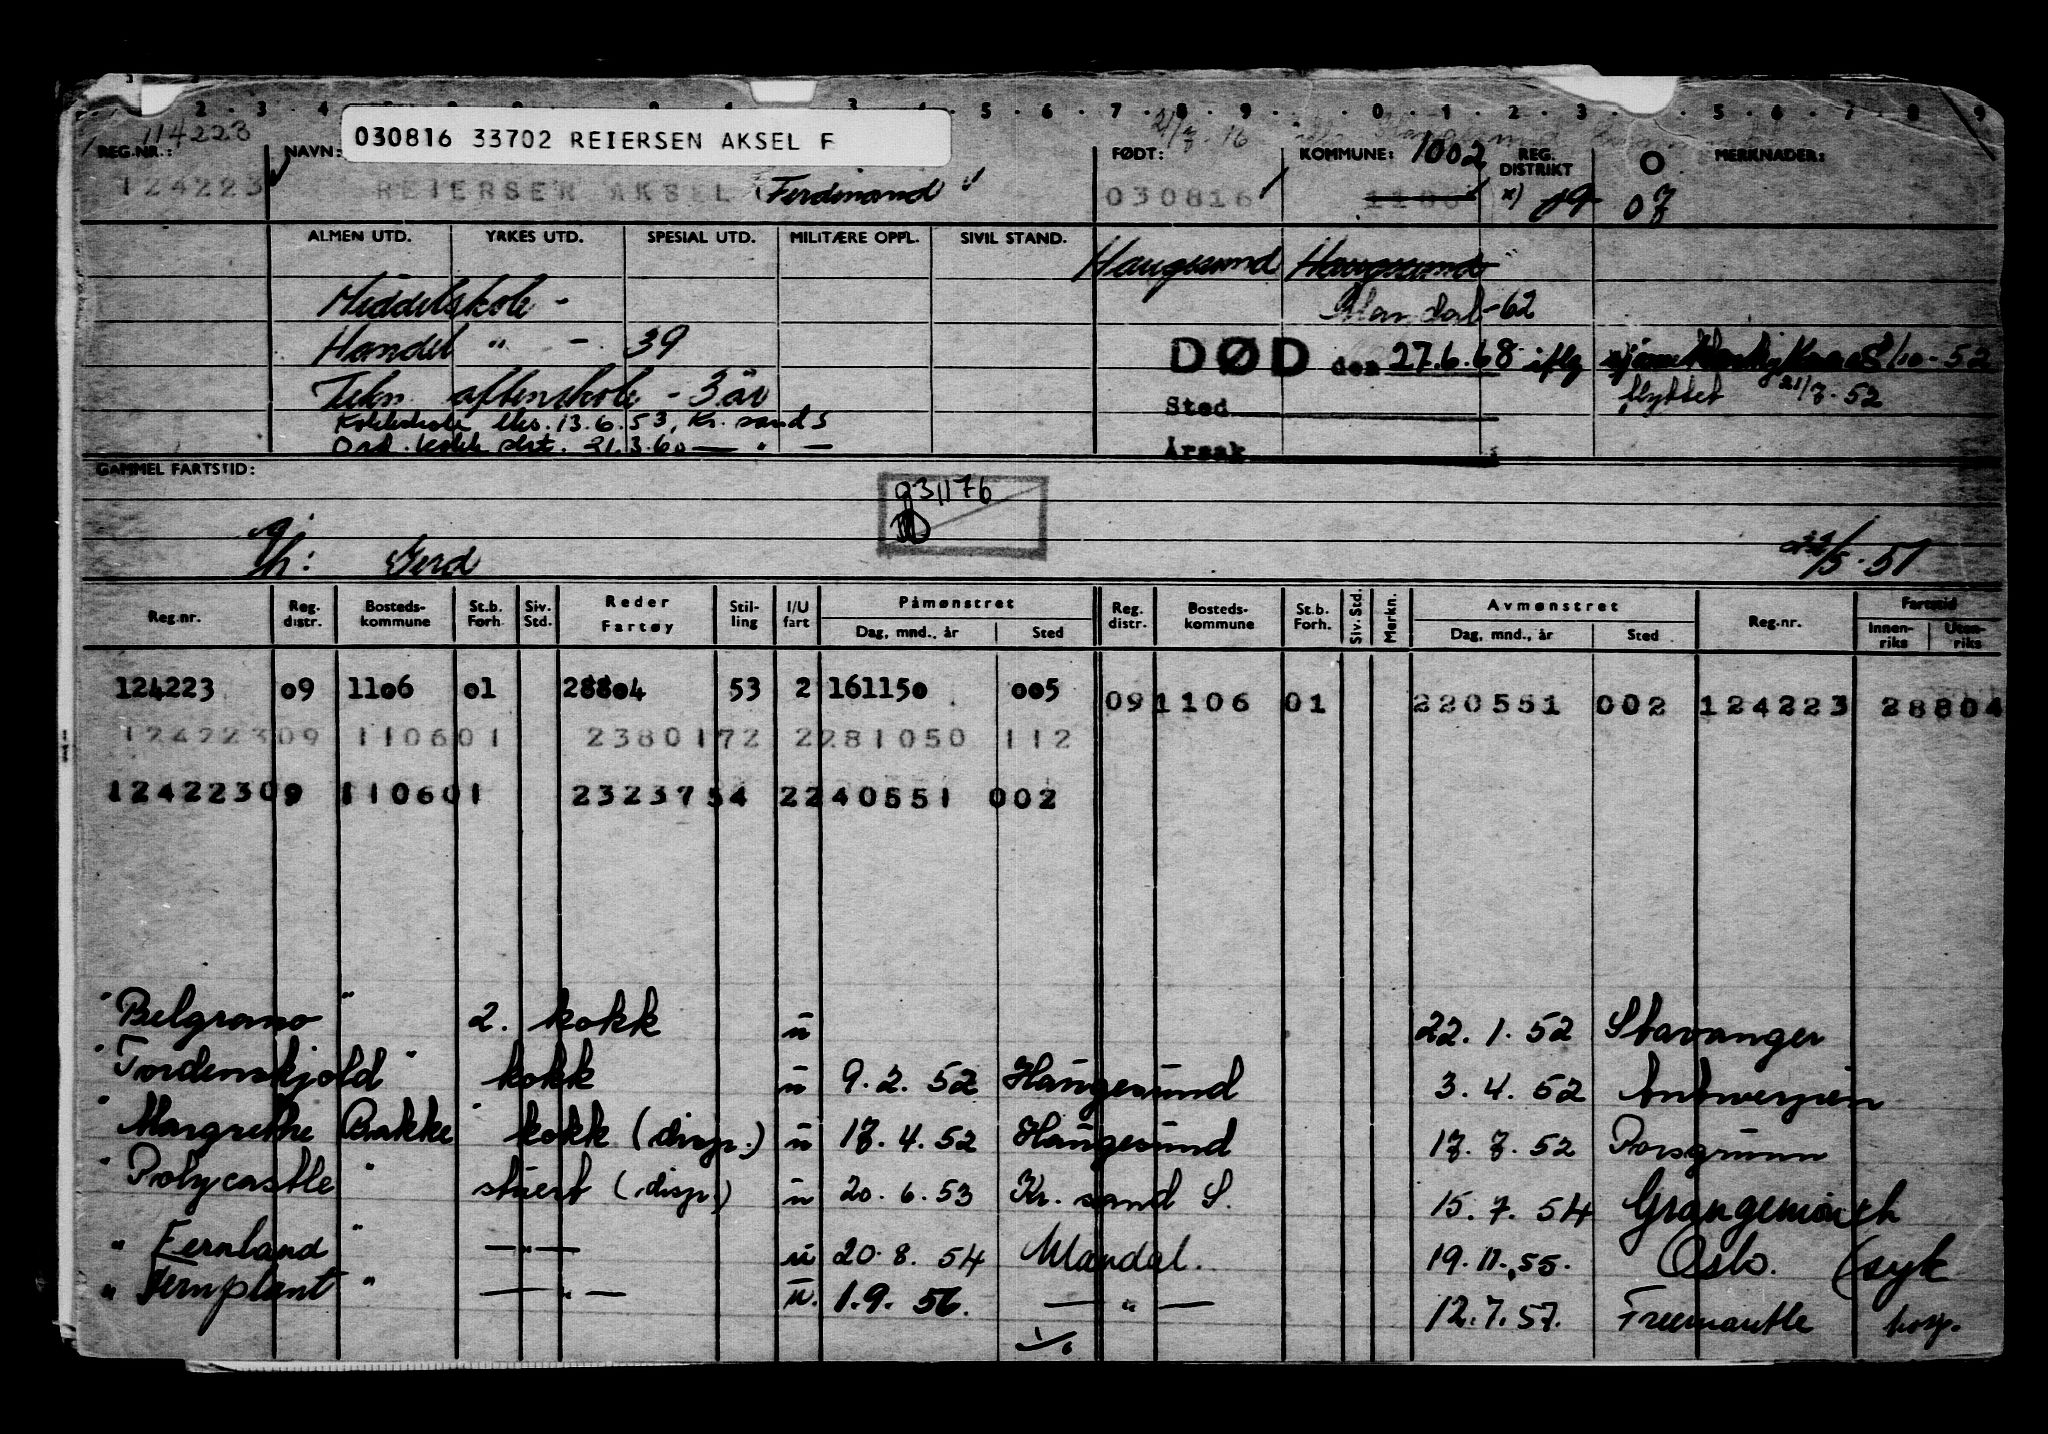 114223
030816 33702 REIERSEN AKSEL F
REG.NR.: NAVN: FØDT: KOMMUNE: 1002 REG. DISTRIKT O MERKNADER:
124223 REIERSEN AKSEL Ferdinand 030816 1106 x) 09 07
ALMEN UTD. YRKES UTD. SPESIAL UTD. MILITÆRE OPPL. SIVIL STAND. Haugesund Haugesund
Middelskole - Mandal -62
Handel " - 39 DØD den 27.6.68 iflg
Tekn. aftenskole - 3 år Sted flyttet 21/7.52
Kokkskole eks. 13.6.53, Kr. sand S
Ord. kokk 21.3.60 — " — Årsak
GAMMEL FARTSTID:
931176
Gerd 5.51
Reg.nr. Reg. distr. Bosteds-kommune St.b. Forh. Siv. Std. Reder Fartøy Stil-ling I/U fart Påmønstret Dag, mnd., år Sted Reg. distr. Bosteds-kommune St.b. Forh. Siv. Std. Merkn. Avmønstret Dag, mnd., år Sted Reg.nr. Fartstid Innen-riks Uten-riks
124223 09 1106 01 28804 53 2 161150 005 09 1106 01 220551 002 124223 28804
124223 09 1106 01 23801 72 2 281050 112
124223 09 1106 01 23237 54 2 240551 002
"Belgrano" 2. kokk u 22.1.52 Stavanger
"Tordenskjold" kokk u 9.2.52 Haugesund 3.4.52 Antwerpen
"Margrethe Bakke" kokk (disp.) u 17.4.52 Haugesund 17.7.52 Porsgrunn
"Polycastle" stuert (disp.) u 20.6.53 Kr. sand S. 15.7.54 Grangemouth
"Fernland" —"— u 20.8.54 Mandal. 19.11.55. Oslo. (syk
"Fernplant" —"— u. 1.9.56. —"— 12.7.57. Freemantle hosp.